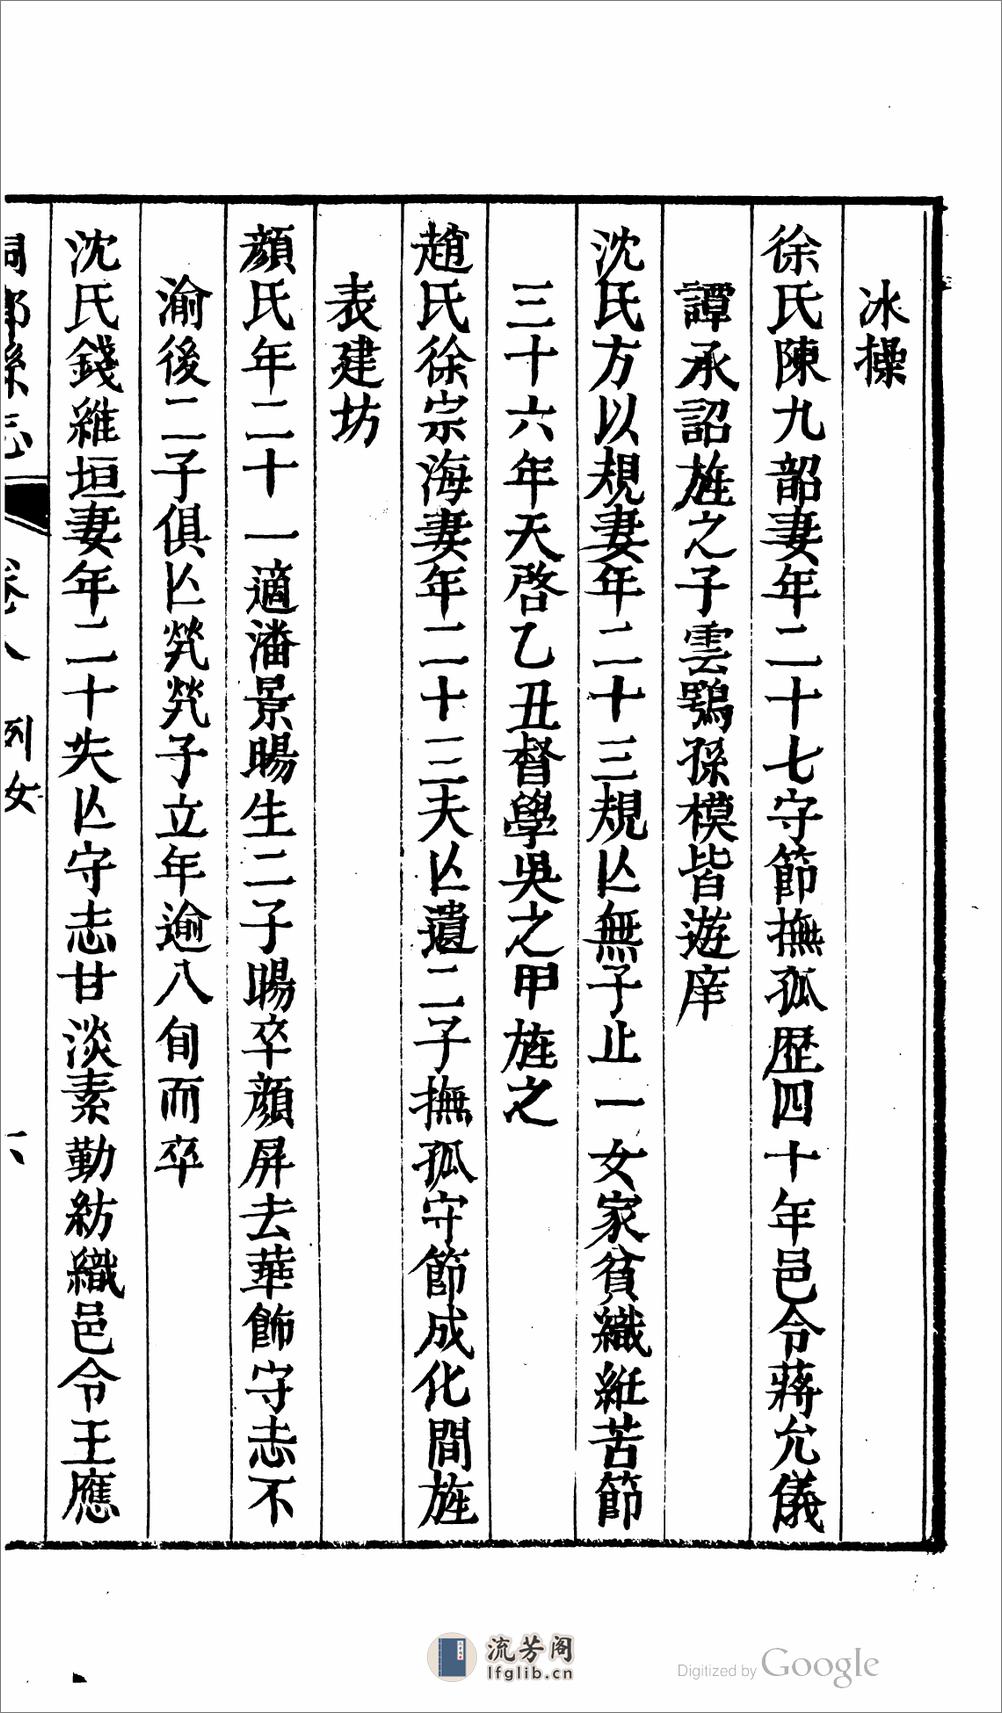 冰操
徐氏陳九韶妻年二十七守節撫孤歴四十年邑令蔣允儀
譚承詔旌之子雲鶚孫模皆遊庠
沈氏方以規妻年二十三規亾無子止一女家貧織絍苦節
三十六年天啓乙丑督學吳之甲旌之
趙氏徐宗海妻年二十三夫亾遺二子撫孤守節成化間旌
表建坊
顔氏年二十一適潘景暘生二子暘卒顔屏去華飾守志不
渝後二子俱亾煢煢孑立年逾八旬而卒
沈氏錢維垣妻年二十夫亾守志甘淡素勤紡織邑令王應
桐鄉縣志 卷八 列女
流芳阁
lfglib.cn
Digitized by Google